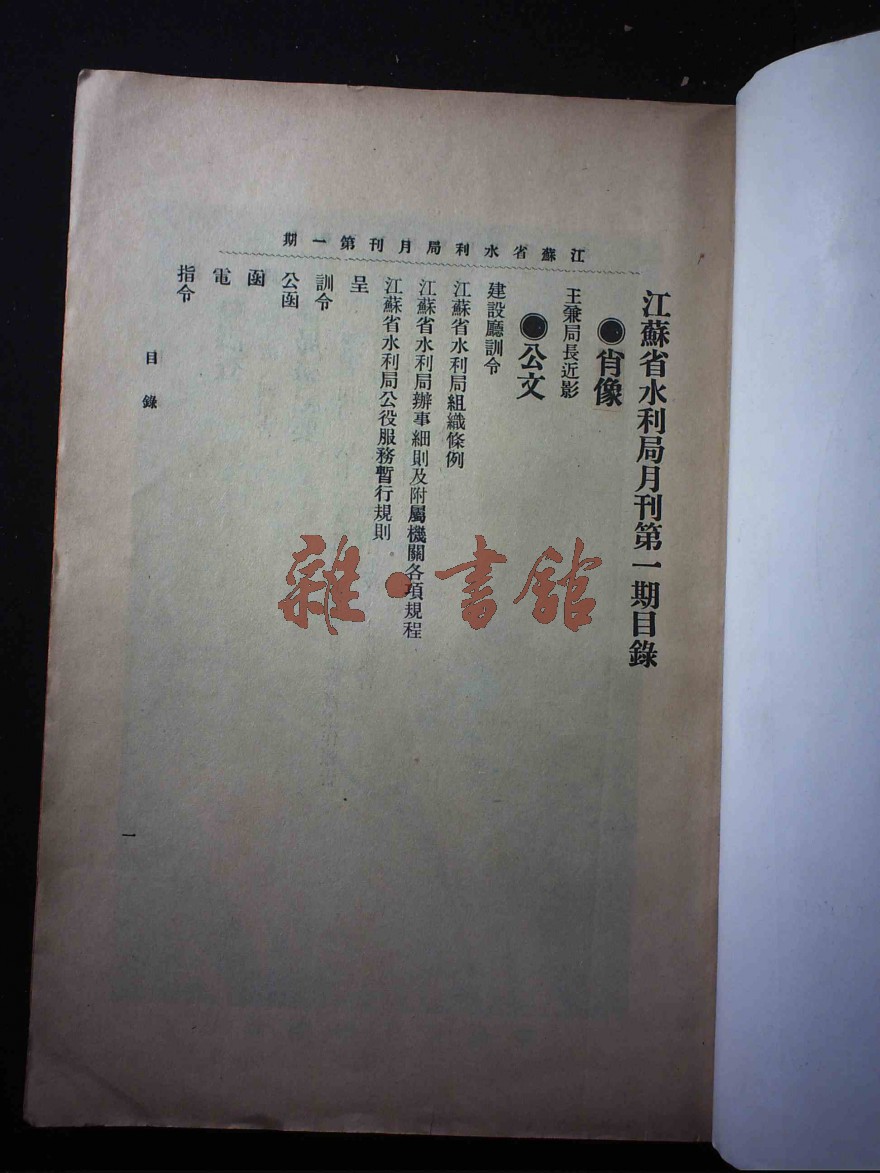 江蘇省水利局月刊第一期
江蘇省水利局月刊第一期目錄
◉肖像
王兼局長近影
◉公文
建設廳訓令
江蘇省水利局組織條例
江蘇省水利局辦事細則及附屬機關各項規程
江蘇省水利局公役服務暫行規則
呈
訓令
公函
函
電
指令
目錄
一
雜·書館